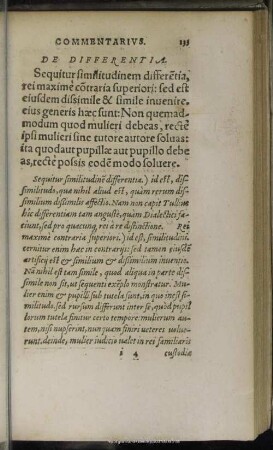 COMMENTARIVS. 135
DE DIFFERENTIA.
Sequitur similitudinem differētia,
rei maximè cōtraria superiori: sed est
eiusdem dissimile & simile inuenire.
eius generis hæc sunt: Non quemad-
modum quod mulieri debeas, rectè
ipsi mulieri sine tutore autore soluas:
ita quod aut pupillæ aut pupillo debe
as, rectè possis eodē modo soluere.
Sequitur similitudinē differentia.) id est, dis-
similitudo, quæ nihil aliud est, quàm rerum dis-
similium dissimilis affectio. Nam non capit Tullius
hîc differētiam tam angustè, quàm Dialectici fa-
ciunt, sed pro quacunq; rei à re distinctione. Rei
maximè contraria superiori,) id est, similitudini.
cernitur enim hæc in contrarijs: sed tamen eiusdē
artificij est & similium & dissimilium inuentio.
Nā nihil est tam simile, quod aliqua in parte dissi-
mile non sit, ut sequenti exēplo monstratur. Mu-
lier enim & pupilli sub tutela sunt, in quo inest si-
militudo. sed rursum differunt inter se, quòd pupil
lorum tutela finitur certo tempore: mulierum au-
tem, nisi nupserint, nunquam finiri ueteres uolue-
runt. deinde, mulier iudicio ualet in rei familiaris
i 4 custodia